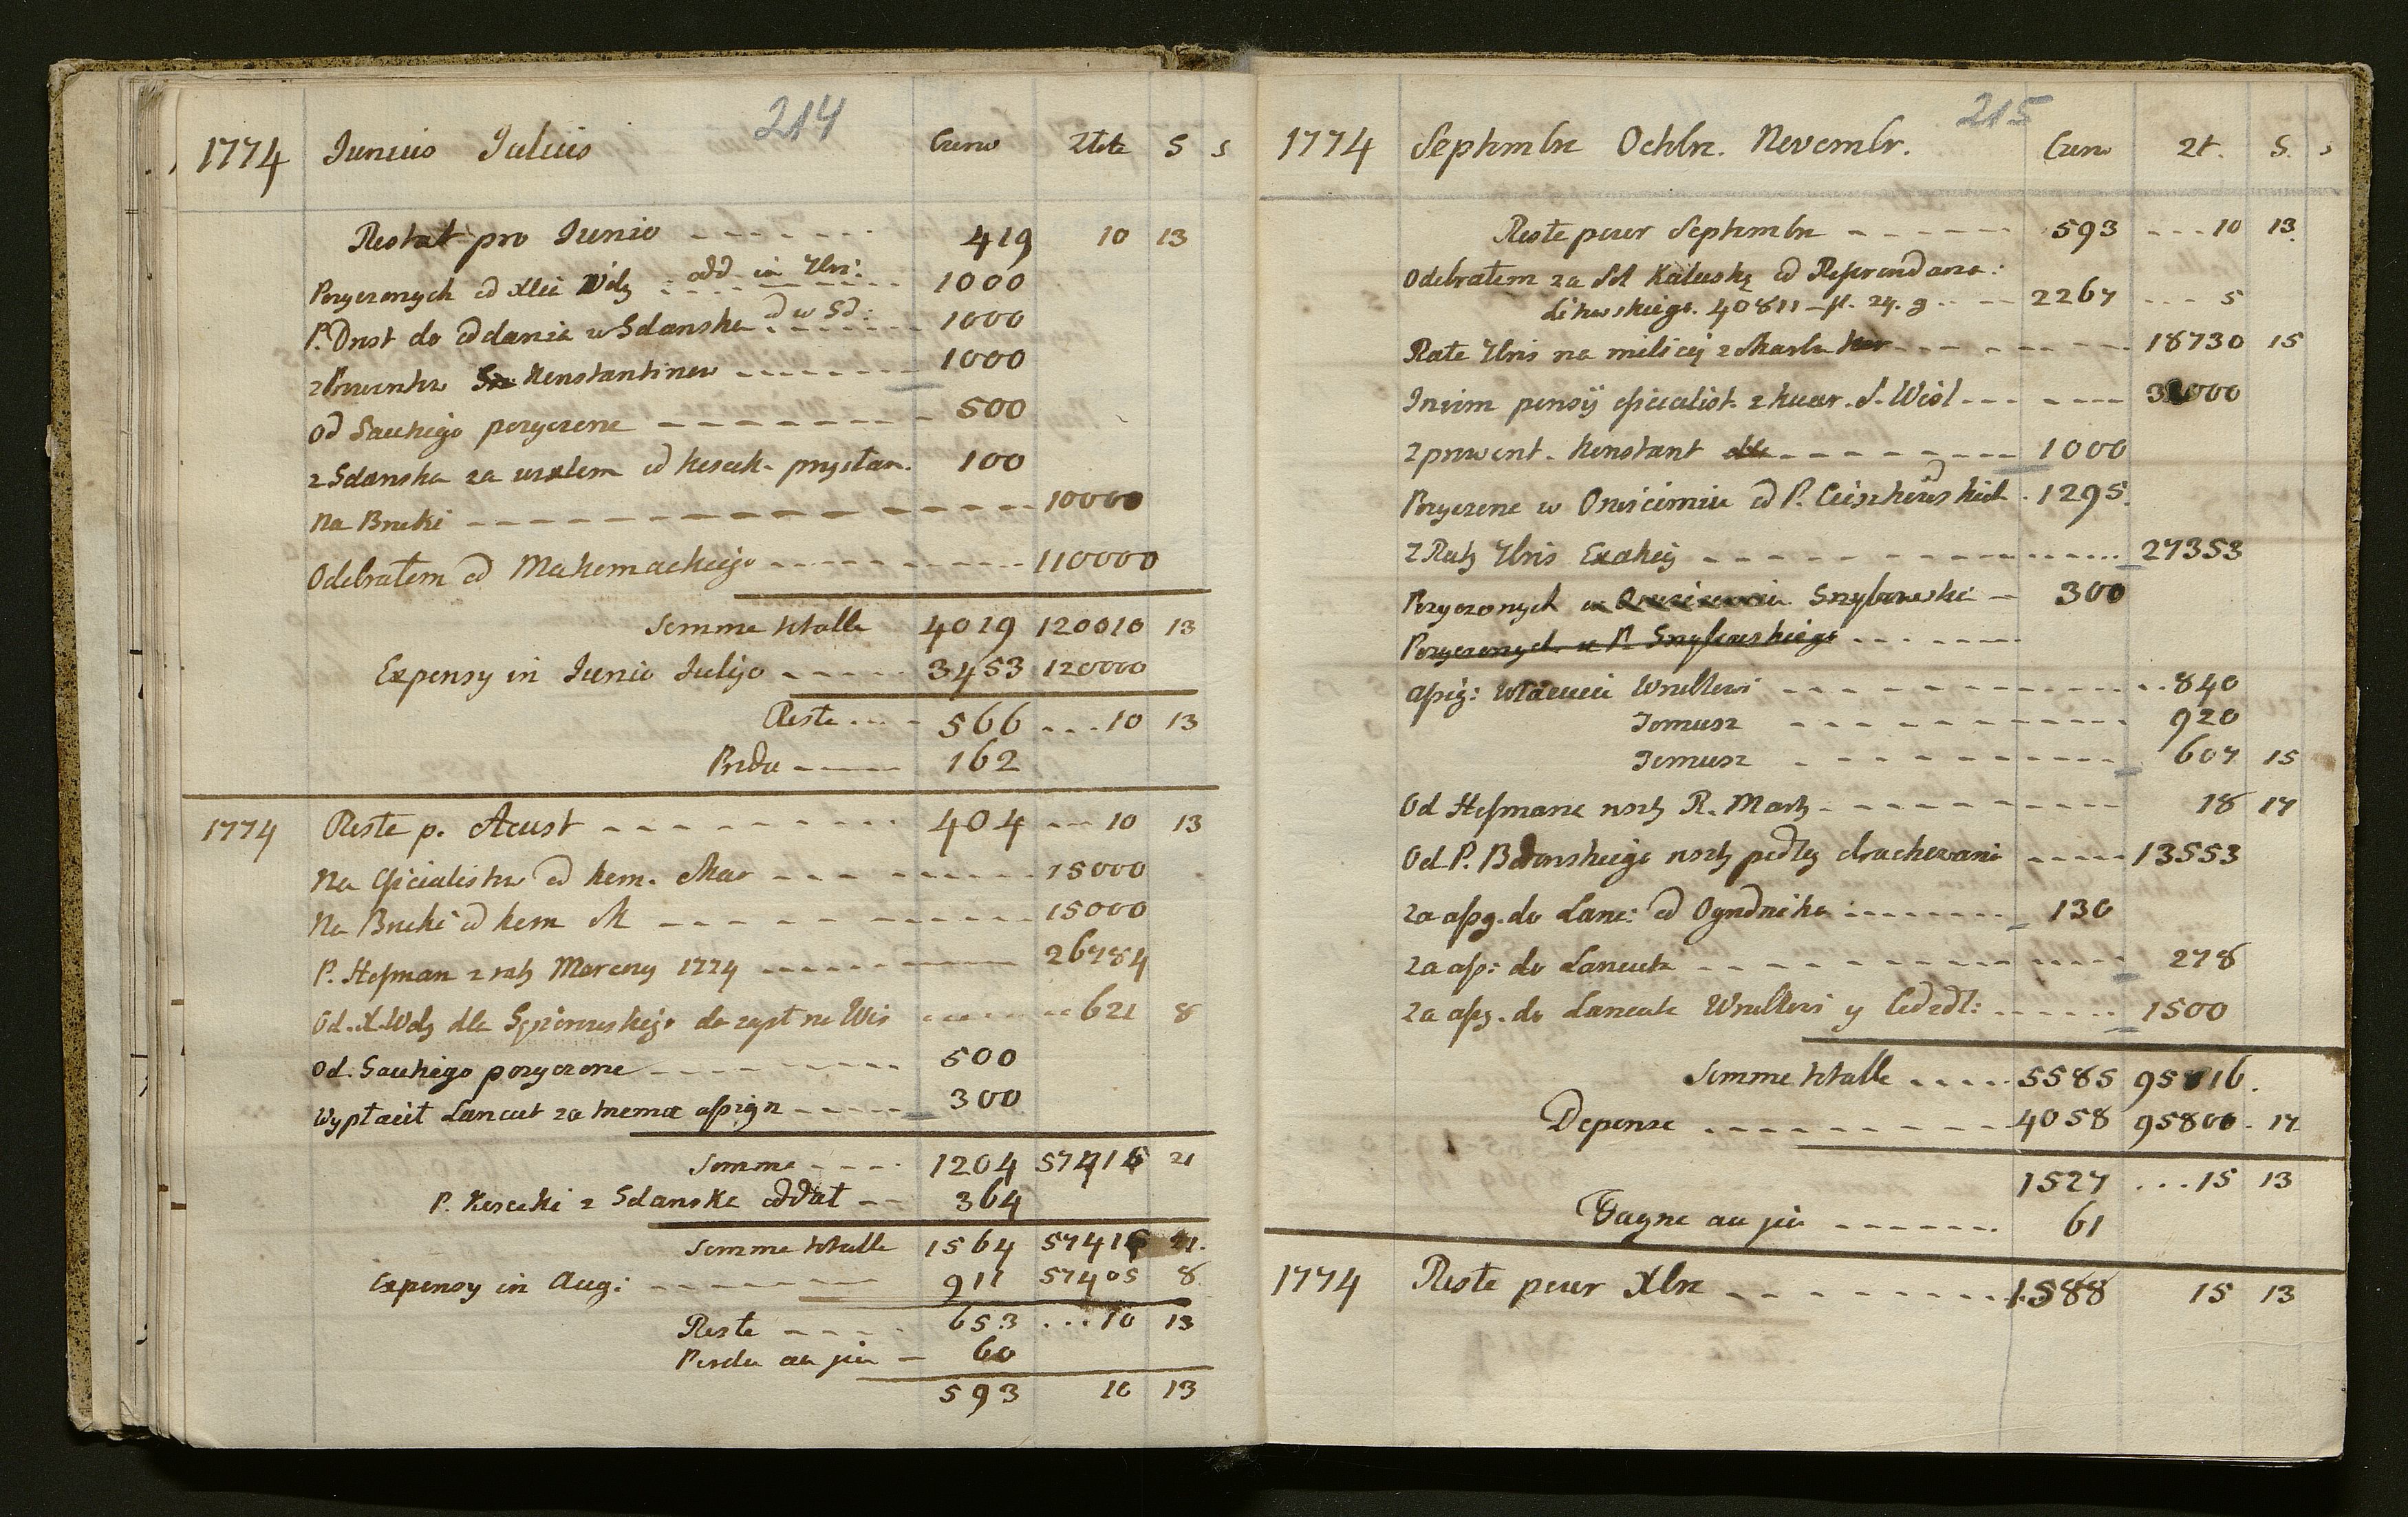 214
1774 Junius Julius Czerw Złote S s
Restat pro Junio - - - - - - - 419 10 13
Pozyczonych od Xcia Wdy : odd in 7bri: 1000
P. Dnst do oddania w Gdansku d w Gd: 1000
z Prowentu Konstantinow - - - - - - - 1000
Od Sauhigo pozyczone - - - - - - - 500
z Gdanska za wexlem od Koseck. przysłan. 100
Na Bruki - - - - - - - 10000
Odebrałem od Makomackiego - - - - - - - 110000
Somme totalle 4019 120010 13
Expensy in Junio Julijo - - - - - 3453 120000
Reste - - - - 566 ... 10 13
Perdu - - - - 162
1774 Reste p. Aoust - - - - - - - 404 --- 10 13
Na Oficialistow od kom. Mar - - - - - - - 15000
Na Bruki od kom M - - - - - - - 15000
P. Hofman z raty Marcowy 1774 - - - - - - - 26784
Od. X. Wdy dla do zapł na Wis - - - - - 621 8
Od. Sauhigo pozyczone - - - - - - - 500
Wypłacił Lancut za moma assign - - - - - 300
Somme - - - - 1204 57416 21
P. Kosecki z Gdanska oddał -- 364
Somme totalle 1564 57416 21.
Expensy in Aug: - - - - - - - 911 57405 8.
Reste - - - - 653 ... 10 13
Perdu au jeu - 60
593 10 13
215
1774 Septembre Octobr. Novembr. Czerw Zł. S. s
Reste pour Septembre - - - - - - 593 --- 10 13.
Odebrałem za Sol Kaluską od
Litewskiego. 40811 - fl. 24. g - - - 2267 --- 5
Rate 7bris na milicej z Marla - - - - - - - 18730 15
Inszm pensÿ oficialist. z kwar. S. Wisl - - - - - - 000
z prowent. Konstant - - - - - - - 1000
Pozyczone w Oswiecimiu od P. Cieszkowskich . 1295.
Z Raty 7bris - - - - - - - 27353
Pozyczonych Szybowski - 300
Pozyczonych u P. Szybowskiego - - - - - -
assig: Wroblowi - - - - - - - 840
Tomusz - - - - - - - 920
Tomusz - - - - - - - 607 15
Od Hofmana reszty R. Marty - - - - - - - 18 17
Od P. reszty podlug obrachowani - - - - - 13553
Za assg. do Lanc: od Ogrodnika - - - - - - - 130
Za ass: do Lancuta - - - - - - - 278
Za assg. do Lancuta Wroblowi y - - - - - - 1500
Somme totalle - - - - - 5585 95816.
Depense - - - - - - - 4058 95800. 17
1527 ... 15 13
Gagne au jeu - - - - - - - 61
1774 Reste pour Xbre - - - - - - - 1588 15 13